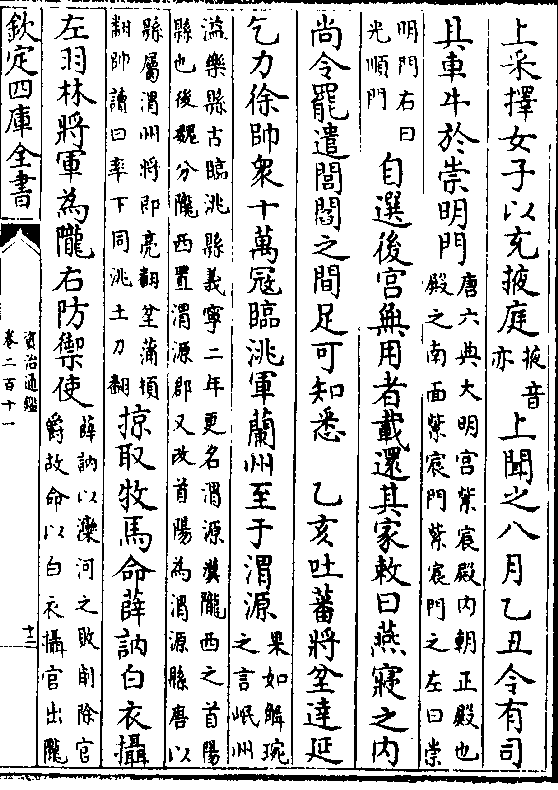 上采擇女子以充掖庭掖音亦上聞之八月乙丑令有司
具車牛於崇明門唐六典大明宫紫宸殿内朝正殿也殿之南面紫宸門紫宸門之左曰崇
明門右曰光順門自選後宫無用者載還其家敕曰燕寢之内
尚令罷遣閭閻之間足可知悉 乙亥吐蕃將坌達延
乞力徐帥衆十萬寇臨洮軍蘭州至于渭源果如解琬之言岷州
溢樂縣古臨洮縣義寧二年更名渭源漢隴西之首陽縣也後魏分隴西置渭源郡又改首陽為渭源縣唐以
縣屬渭州將即亮翻坌蒲頓翻帥讀曰率下同洮土刀翻掠取牧馬命薛訥白衣攝
左羽林將軍為隴右防禦使薛訥以灤河之敗削除官爵故命以白衣攝官出隴
欽定四庫全書
資治通鑑
卷二百十一
十三